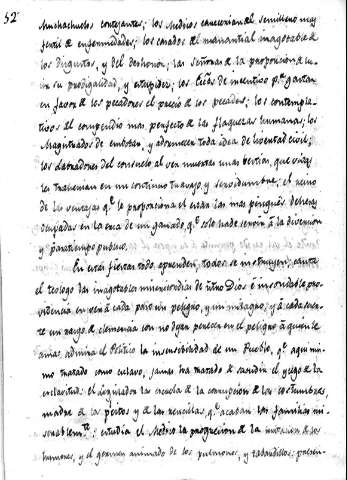 52
Muchachuelos cortejantes; los Medicos carecerian del semillero mas
fertil de enfermedades; los casados del manantial inagotable de
los disgustos, y del deshonor; las señoras de la proporcion de lu-
cir su prodigalidad, y estupidez; los de incentivo pa. gastar
en favor de los pecadores el precio de los pecados; los contempla-
tivos del compendio mas perfecto de las flaquezas humanas; los
Magistrados de embotar, y adormecer toda idea de libertad civil;
los labradores del consuelo de ver muertas unas bestias, que vivas
les trairian en un continuo trabajo, y servidumbre; el reino
de las ventajas qe. le proporciona el estar las mas pingues dehesas
ocupadas en la cria de un ganado, qe. solo hade servir á la diversion
y pasatiempo publico.
En estas fiestas todo aprenden, todos se instruyen; admira
el teologo las inagotables misericordias de ntro Dios e insondable pro-
videncia en ver á cada paso un peligro, y un milagro, y á cada suer-
te un rasgo de clemencia con no dejar perecer en el peligro á quien le
ama; admira el Politico la insensibilidad de un Pueblo, qe. aqui mis-
mo tratado como esclavo, jamas ha tratado de sacudir el yugo de la
esclavitud: el legislador la escuela de la corrupcion de las costumbres,
madre de los pleitos y de las rencillas, qe. acaban las familias mi-
serablemte.: estudia el Medico la progresion de la irritacion de los
humores, y el germen animado de los pulmones, y tabardillos: presen-